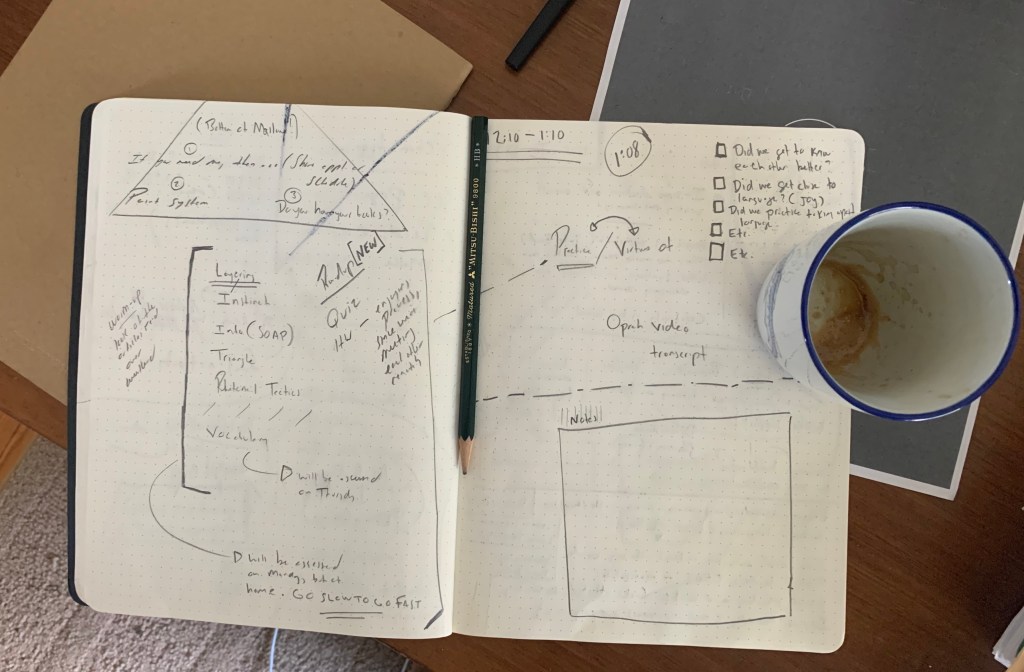 (Bottom of
①
If you need me, then ... (Share appt.
Schedule)
②
Point System
③
Do you have your books?
Layering
Instinct
Info (SOAP)
Triangle
Rhetorical Tactics
Vocabulary
will be assessed
on Thursday
will be assessed
on Monday, but at
home. GO SLOW TO GO FAST
[NEW]
Quiz
HW – enjoying
warm-up
look at the
articles read
over
weekend
ESTABLISHED 1887 Matured "MITSU-BISHI" 9800 HB
12:10 – 1:10
1:08
Did we get to know
each other better?
Did we get close to
language? (Joy)
Did we practice taking apart
language
Etc.
Etc.
Practice / Virtues of
Oprah video
transcript
Notes